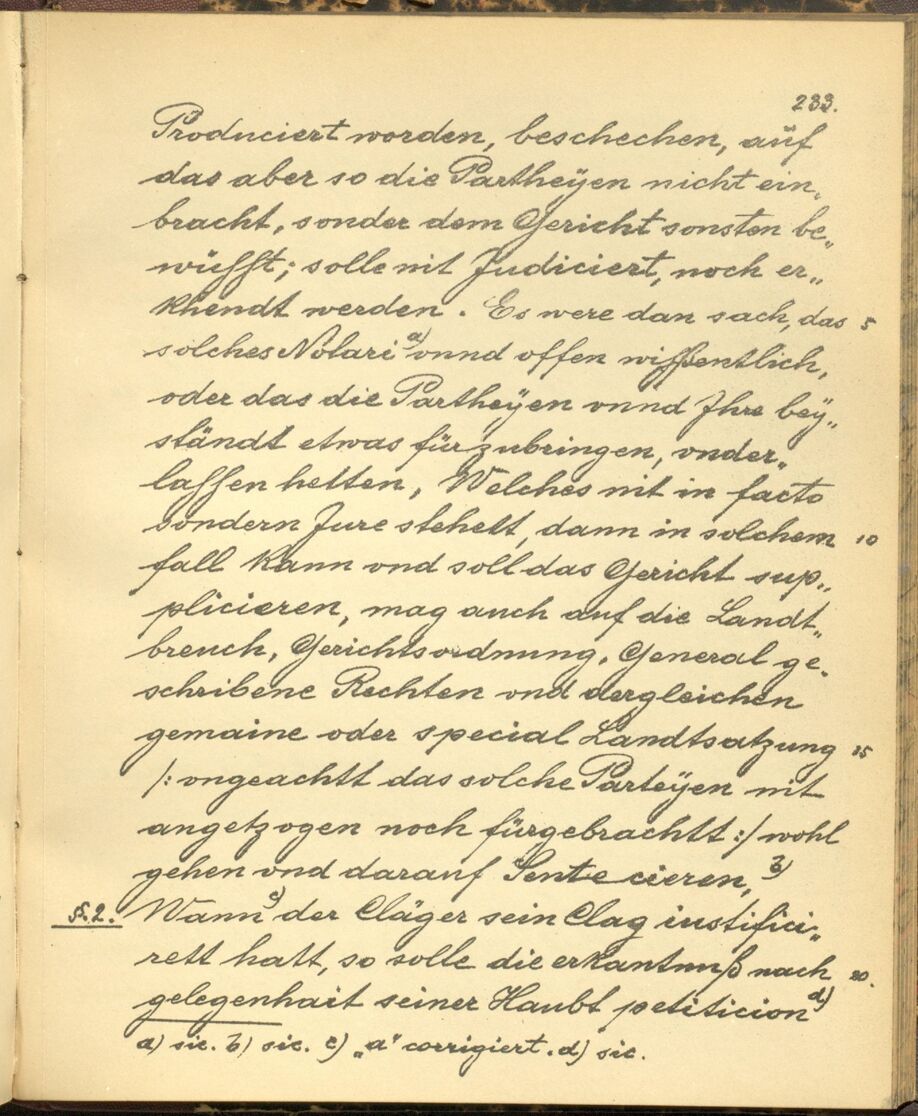 233.
Produciert worden, beschechen, auf
das aber so die Partheÿen nicht ein„
bracht, sonder dem Gericht sonsten be„
wüsst; solle nit Judiciert, noch er„
khendt werden. Es were dan sach, das 5
solches Notari a) vnnd offen wissentlich,
oder das die Partheÿen vnnd Jhre beÿ„
ständt etwas fürzubringen, vnder„
lassen hetten, Welches nit in facto
sondern Jure stehett, dann in solchem 10
fall kann vnd soll das Gericht sup„
plicieren, mag auch auf die Landt„
breuch, Gerichtsordnung, General ge„
schribene Rechten vnd dergleichen
gemaine oder special Landtsatzung 15
/: vngeachtt das solche Parteÿen nit
angetzogen noch fürgebrachtt :/ wohl
gehen vnd darauf Sentecieren, b)
§. 2. Wann c) der Cläger sein Clag iustifici„
rett hatt, so solle die erkantnuß nach 20.
gelegenhait seiner Haubt petiticion d)
a) sic. b) sic. c) „a" corrigiert. d) sic.